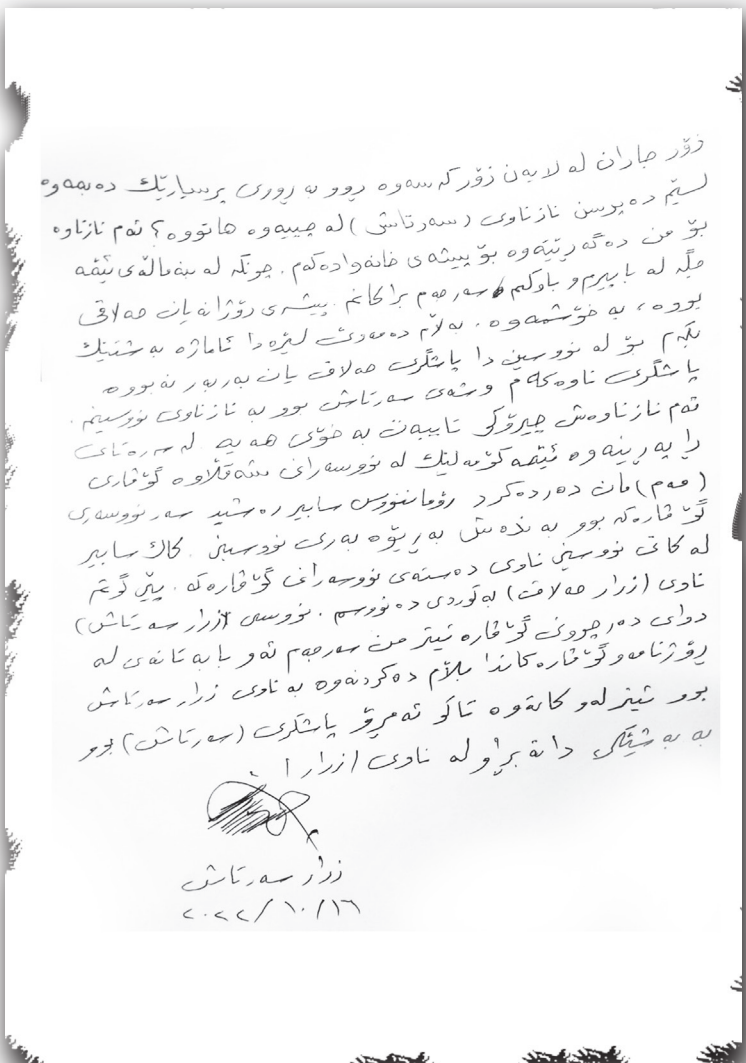 زۆر جاران لە لایەن زۆر کەسەوە ڕوو بە ڕووی پرسیارێك دەبمەوە
لێم دەپرسن نازناوی (سەرتاش) لە چییەوە هاتووە؟ ئەم نازناوە
بۆ من دەگەڕێتەوە بۆ پیشەی خانەوادەکەم. چونکە لە بنەماڵەی ئێمە
جگە لە باپیرم و باوکم سەرجەم براکانم پیشەی ڕۆژانەیان حەلاقی
بووە، بە خۆشمەوە. بەڵام دەمەوێ لێرەدا ئاماژە بە شتێك
بکەم بۆ لە نووسین دا پاشگری حەلاق یان بەربەر نەبووە
پاشگری ناوەکەم وشەی سەرتاش بوو بە نازناوی نووسینم.
ئەم نازناوەش چیرۆکی تایبەت بە خۆی هەیە. لە سەرەتای
ڕاپەڕینەوە ئێمە کۆمەلێك لە نووسەرانی شەقڵاوە گۆڤاری
(مەم)مان دەردەکرد ڕۆماننووس سابیر ڕەشید سەرنووسەری
گۆڤارەکە بوو بەندەش بەڕێوەبەری نووسین. کاك سابیر
لە کاتی نووسینی ناوی دەستەی نووسەرانی گۆڤارەکە. پێی گوتم
ناوی (زرار حەلاق) بە کوردی دەنووسم. نووسی (زرار سەرتاش)
دوای دەرچوونی گۆڤارە ئیتر من سەرجەم ئەو بابەتانەی لە
ڕۆژنامە و گۆڤارەکاندا بڵاوم دەکردنەوە بە ناوی زرار سەرتاش
بوو ئیتر لەو کاتەوە تاکو ئەمڕۆ پاشگری (سەرتاش) بوو
بە بەشێکی دانەبڕاو لە ناوی (زرار)
زرار سەرتاش
٢٠٢٢/١٠/١٦